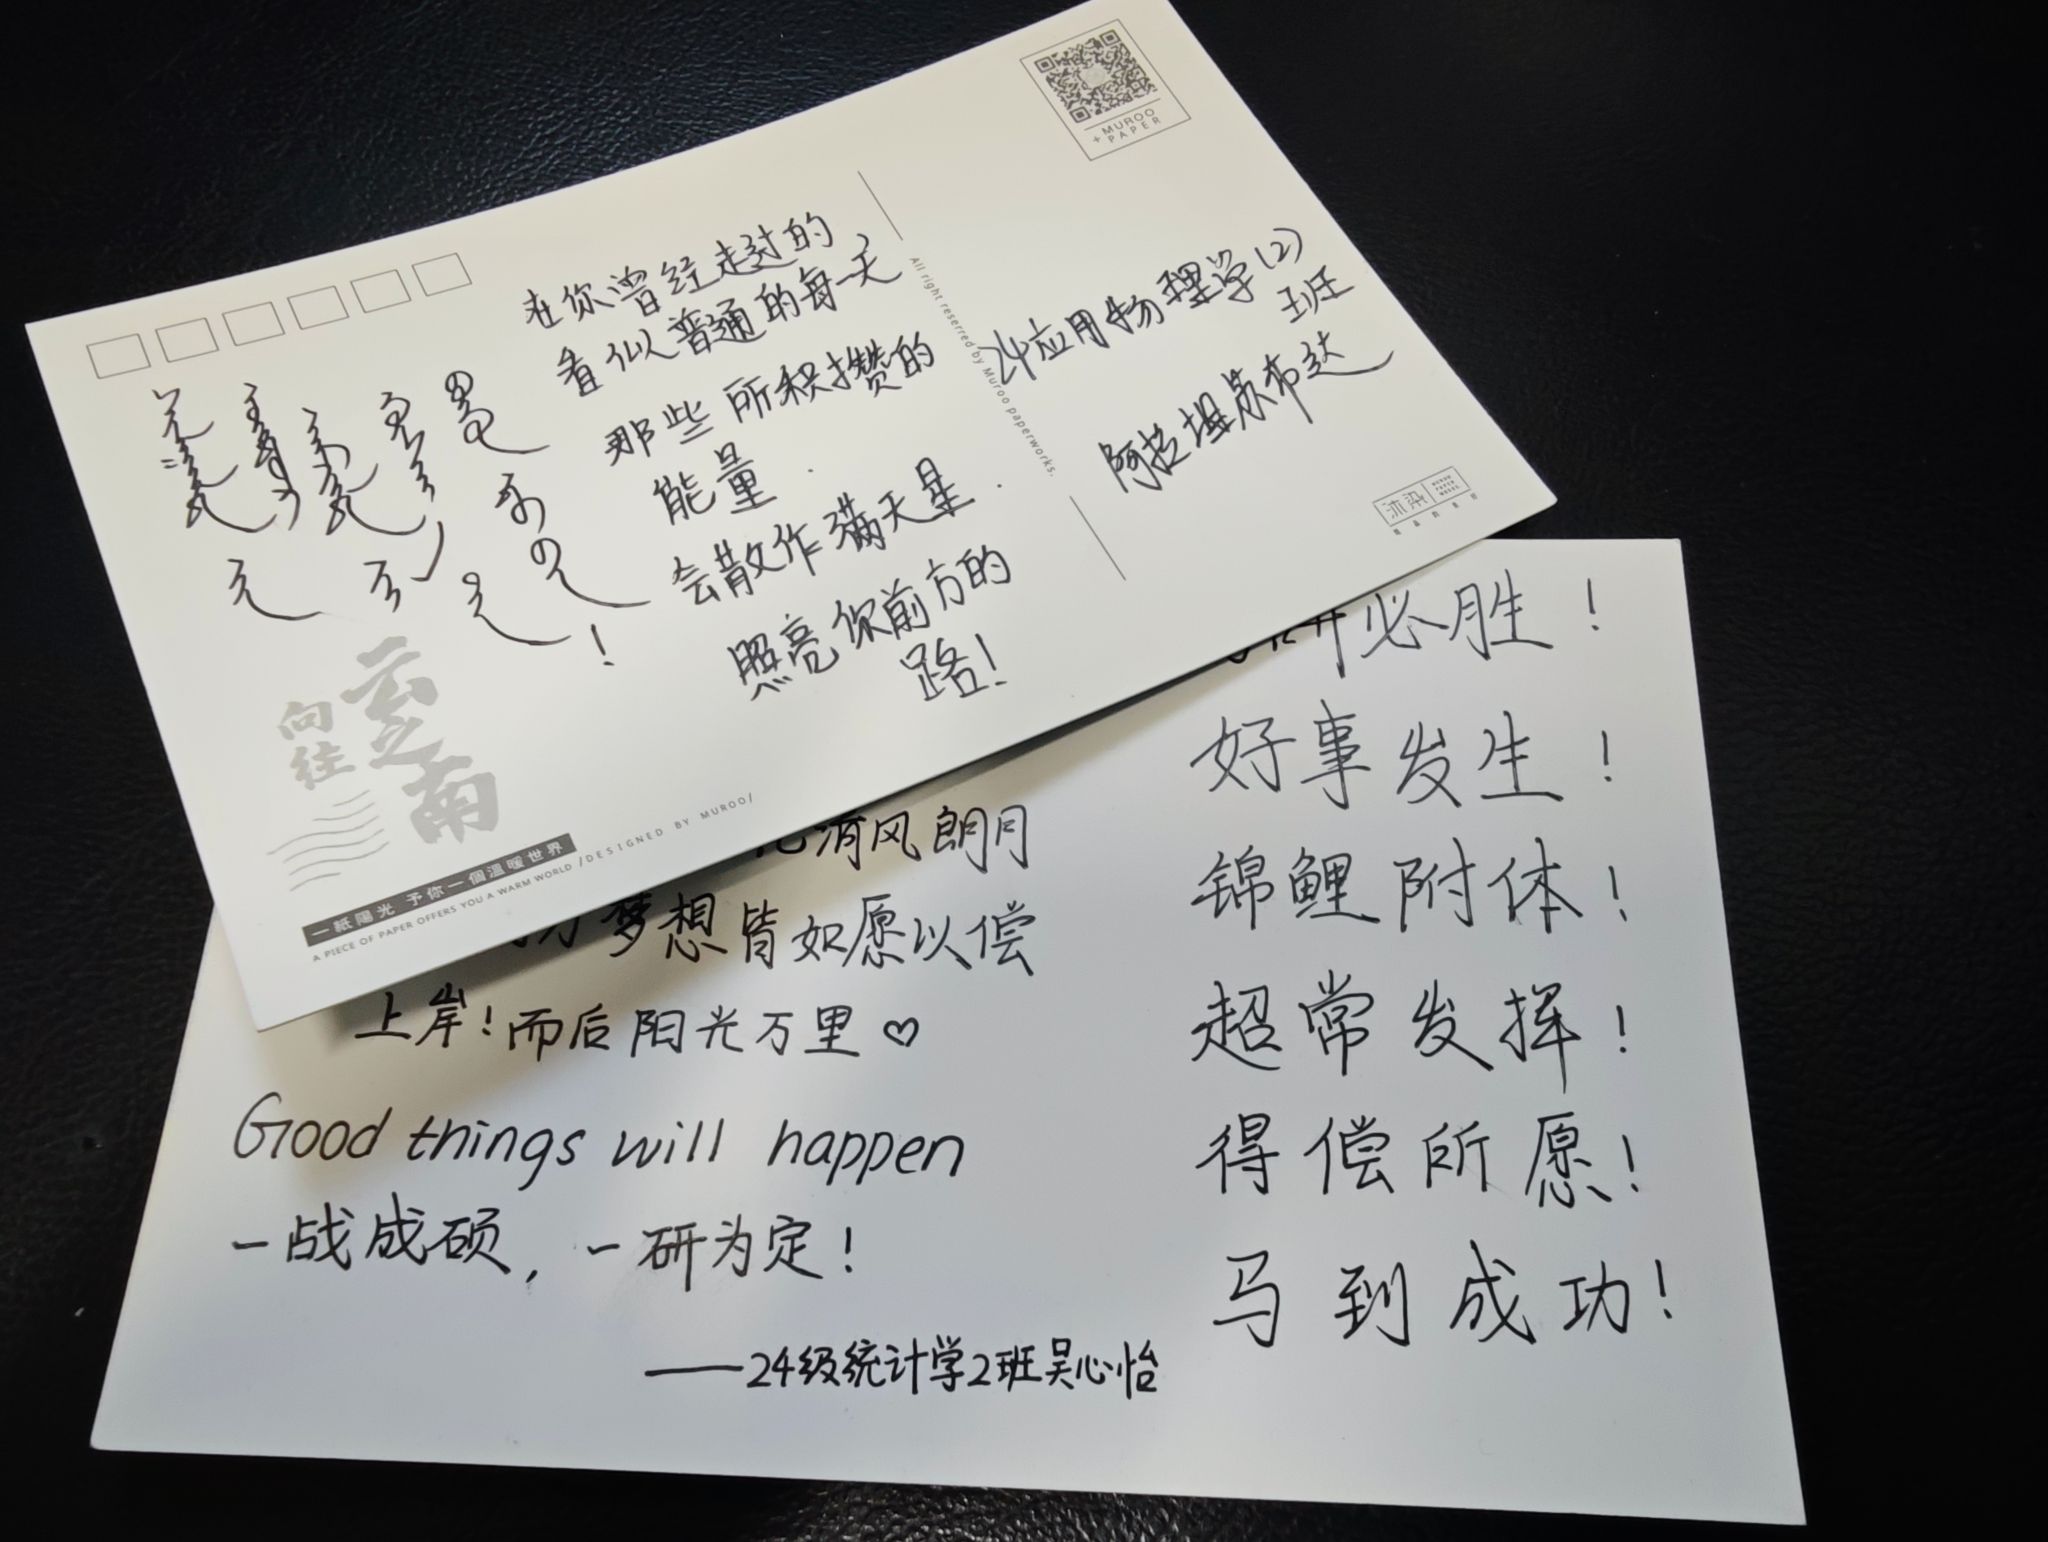 MUROO
PAPER
在你曾经走过的
看似普通的每一天
那些所积攒的
能量.
会散作满天星.
照亮你前方的
路!
All right reserred by Muroo paperworks.
24应用物理学(2)
班
阿拉坦苏布达
沐染
向往
云南
一紙陽光 予你一個溫暖世界
A PIECE OF PAPER OFFERS YOU A WARM WORLD /DESIGNED BY MUROO/
清风朗月
梦想皆如愿以偿
上岸!而后阳光万里♡
Good things will happen
一战成硕,一研为定!
——24级统计学2班吴心怡
研必胜!
好事发生!
锦鲤附体!
超常发挥!
得偿所愿!
马到成功!